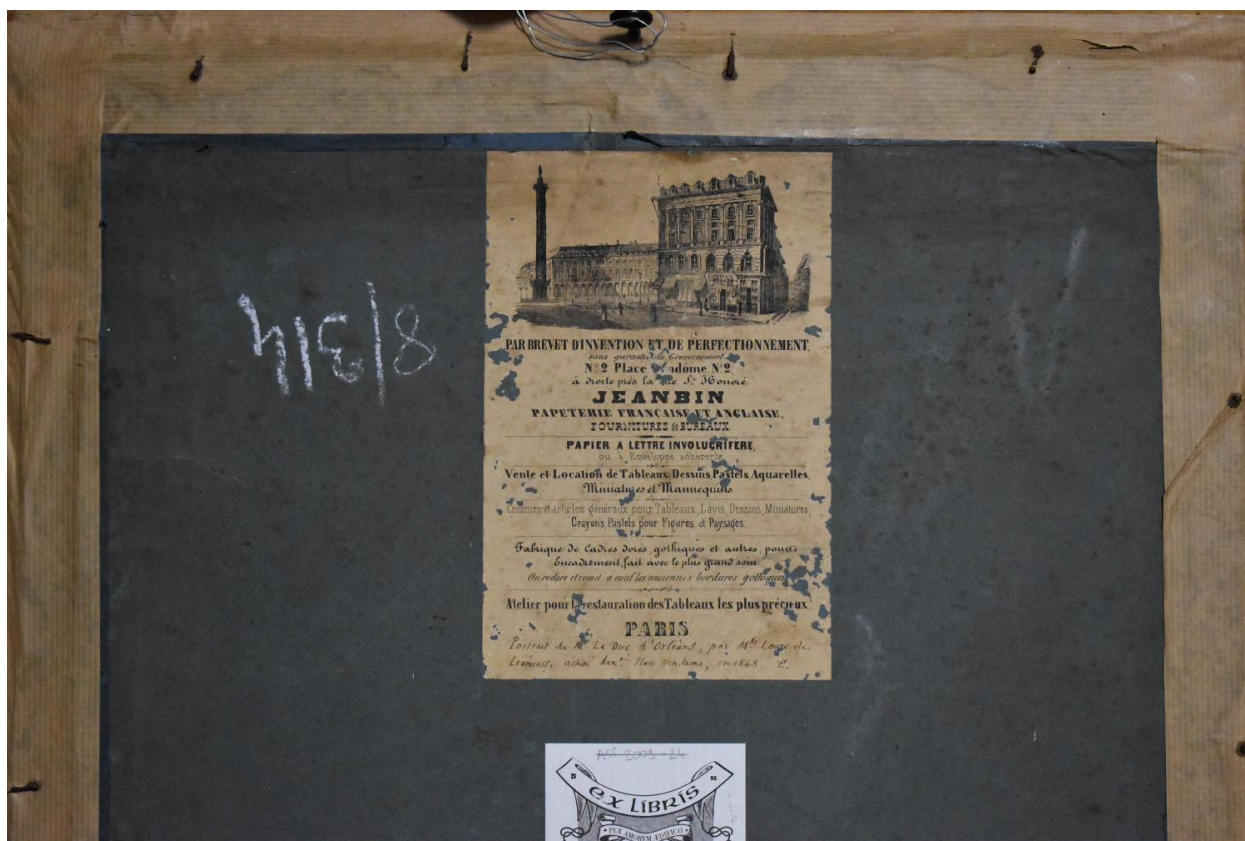 8/314
PAR BREVET D'INVENTION ET DE PERFECTIONNEMENT,
sans garantie du Gouvernement
N° 2 Place Vendôme N° 2,
à droite près la rue St Honoré
JEANBIN
PAPETERIE FRANCAISE ET ANGLAISE,
FOURNITURES de BUREAUX
PAPIER A LETTRE INVOLUCRIFÈRE,
ou à Enveloppe adhérente
Vente et Location de Tableaux Dessins, Pastels, Aquarelles,
Miniatures et Mannequins
Couleurs et articles généraux pour Tableaux, Lavis, Dessins, Miniatures,
Crayons, Pastels pour Figures et Paysages.
Fabrique de Cadres dorés, gothiques et autres, pour
Encadrement, fait avec le plus grand soin
On redore et remet a neuf les anciennes bordures gothiques
Atelier pour la restauration des Tableaux les plus précieux
PARIS
Portrait de Mr Le Duc d'Orléans, par Mlle Louise de
acheté Place Vendome, en 1848
ASS 2003-24
EX LIBRIS
PER AMOREM ÆDIFICO